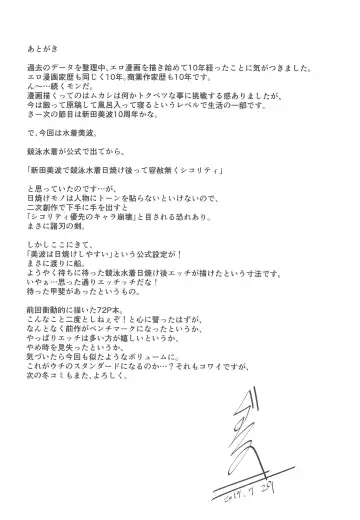 あとがき
過去のデータを整理中、エロ漫画を描き始めて10年経ったことに気がつきました。
エロ漫画家歴も同じく10年。商業作家歴も10年です。
ん〜…続くモンだ。
漫画描くってのはムカシは何かトクベツな事に挑戦する感ありましたが、
今は飯って原稿して風呂入って寝るというレベルで生活の一部です。
さー次の節目は新田美波10周年かな。
で、今回は水着美波。
競泳水着が公式で出てから、
「新田美波で競泳水着日焼け後って容赦無くシコリティ」
と思っていたのです…が、
日焼けモノは人物にトーンを貼らないといけないので、
二次創作で下手に手を出すと
「シコリティ優先のキャラ崩壊」と目される恐れあり。
まさに諸刃の剣。
しかしここにきて、
「美波は日焼けしやすい」という公式設定が!
まさに渡りに船。
ようやく待ちに待った競泳水着日焼け後エッチが描けたという寸法です。
いやぁ…思った通りエッチッチだな!
待った甲斐があったというもの。
前回衝動的に描いた72P本。
こんなこと二度としねぇぞ!と心に誓ったはずが、
なんとなく前作がベンチマークになったというか、
やっぱりエッチは多い方が嬉しいというか、
やめ時を見失ったというか、
気づいたら今回も似たようなボリュームに。
これがウチのスタンダードになるのか…?それもコワイですが、
次の冬コミもまた、よろしく。